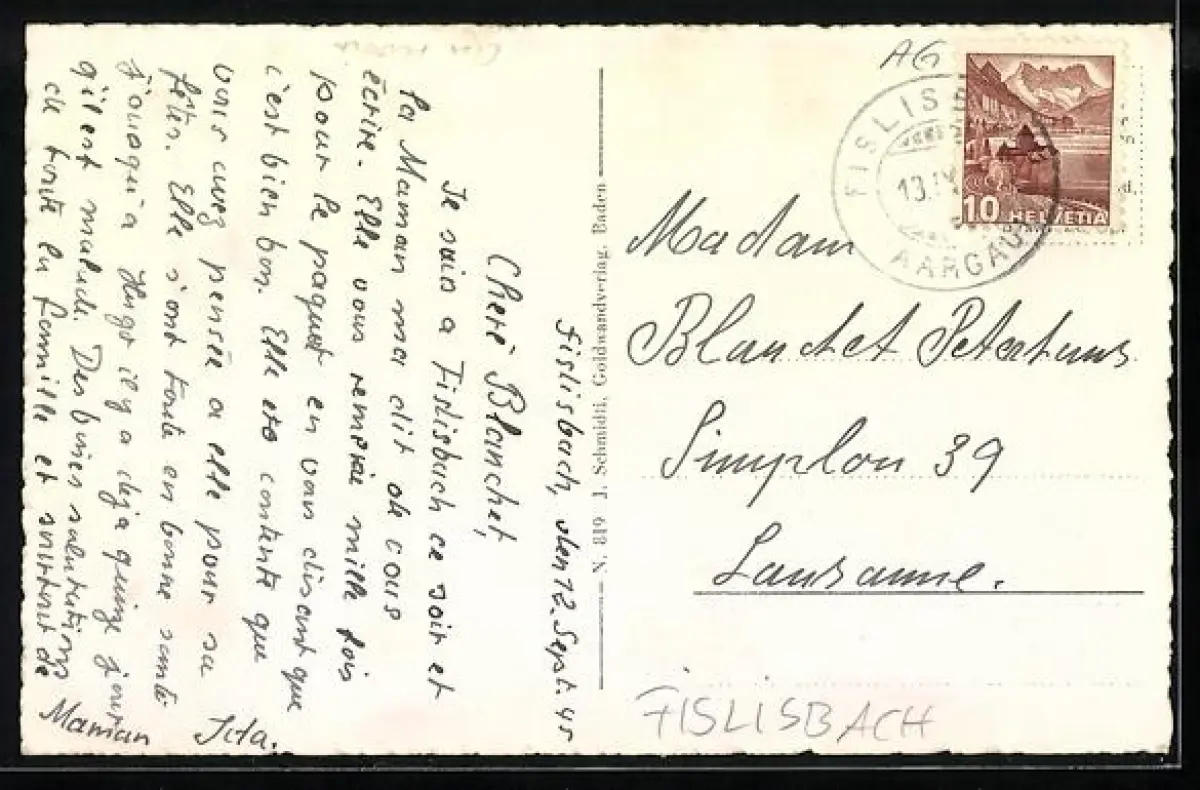 Fislisbach, den 12. Sept. 45
Cherè Blanchet,
Je suis a Fislisbach ce soir et
la Maman ma dit de vous
écrire. Elle vous remerie mille fois
pour le paquet en vous disant que
c'est bien bon. Elle eta contente que
vous avez pensée a elle pour sa
fêtes. Elle s'ont toute en bonne santé
jousqu'a Hugo il y a deja quinze jour
qu'il est malade. Des bones salutations
de toute la famille et surtout de
Maman Ida.
N. 819 T. Schmidli, Goldwandverlag, Baden
AG
FISLISBACH
13.IX
AARGAU
10 HELVETIA
Madam
Blanchet Peterhans
Simplon 39
Lausanne.
FISLISBACH